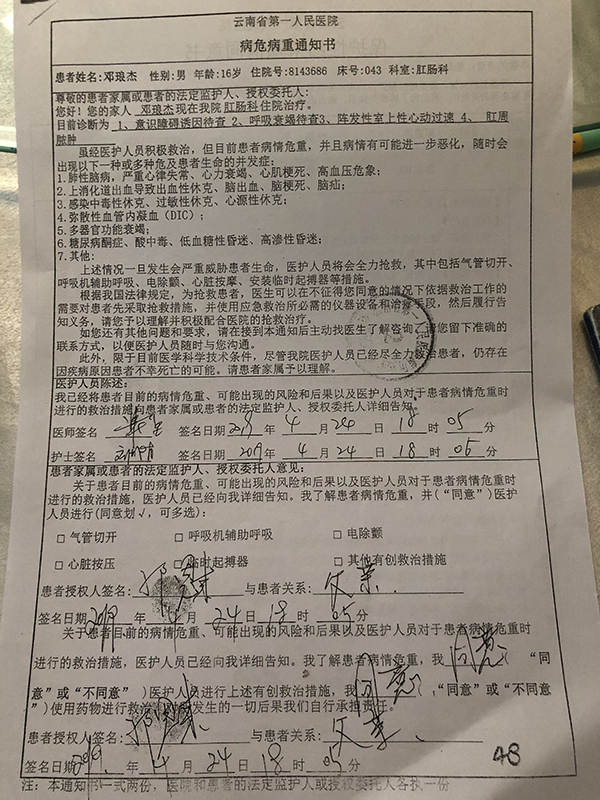 云南省第一人民医院
病危病重通知书
患者姓名:邓琅杰 性别:男 年龄:16岁 住院号:8143686 床号:043 科室:肛肠科
尊敬的患者家属或患者的法定监护人、授权委托人:
您好! 您的家人 邓琅杰 现在我院 肛肠科 住院治疗。
目前诊断为 1、意识障碍诱因待查 2、呼吸衰竭待查3、阵发性室上性心动过速 4、 肛周
脓肿
虽经医护人员积极救治,但目前患者病情危重,并且病情有可能进一步恶化,随时会
出现以下一种或多种危及患者生命的并发症:
1.肺性脑病,严重心律失常、心力衰竭、心肌梗死、高血压危象;
2.上消化道出血导致出血性休克、脑出血、脑梗死、脑疝;
3.感染中毒性休克、过敏性休克、心源性休克;
4.弥散性血管内凝血(DIC);
5.多器官功能衰竭;
6.糖尿病酮症、酸中毒、低血糖性昏迷、高渗性昏迷;
7.其他:
上述情况一旦发生会严重威胁患者生命,医护人员将会全力抢救,其中包括气管切开、
呼吸机辅助呼吸、电除颤、心脏按摩、安装临时起搏器等措施。
根据我国法律规定,为抢救患者,医生可以在不征得您同意的情况下依据救治工作的
需要对患者先采取抢救措施,并使用应急救治所必需的仪器设备和治疗手段,然后履行告
知义务,请您予以理解并积极配合医院的抢救治疗。
如您还有其他问题和要求,请在接到本通知后主动找医生了解咨询,请您留下准确的
联系方式,以便医护人员随时与您沟通。
此外,限于目前医学科学技术条件,尽管我院医护人员已经尽全力救治患者,仍存在
因疾病原因患者不幸死亡的可能。请患者家属予以理解。
医护人员陈述:
我已经将患者目前的病情危重、可能出现的风险和后果以及医护人员对于患者病情危重时
进行的救治措施向患者家属或患者的法定监护人、授权委托人详细告知。
医师签名 签名日期2019 年 4 月 24 日 18 时 05 分
护士签名 签名日期 2019 年 4 月 24 日 18 时 05 分
患者家属或患者的法定监护人、授权委托人意见:
关于患者目前的病情危重、可能出现的风险和后果以及医护人员对于患者病情危重时
进行的救治措施,医护人员已经向我详细告知。我了解患者病情危重,并(“同意”)医护
人员进行(同意划√,可多选):
□ 气管切开 □ 呼吸机辅助呼吸 □ 电除颤
□ 心脏按压 □ 临时起搏器 □ 其他有创救治措施
患者授权人签名: 与患者关系: 父亲.
签名日期2019 年 4 月 24 日 18 时 05 分
关于患者目前的病情危重、可能出现的风险和后果以及医护人员对于患者病情危重时
进行的救治措施,医护人员已经向我详细告知。我了解患者病情危重,我 同意 ( “同
意”或“不同意” )医护人员进行上述有创救治措施,我 同意 ,“同意”或“不同意
”)使用药物进行救治 发生的一切后果我们自行承担责任。
患者授权人签名: 与患者关系: 父亲.
签名日期2019. 年 4 月 24 日 18 时 05 分
48
注: 本通知书一式两份,医院和患者的法定监护人或授权委托人各执一份